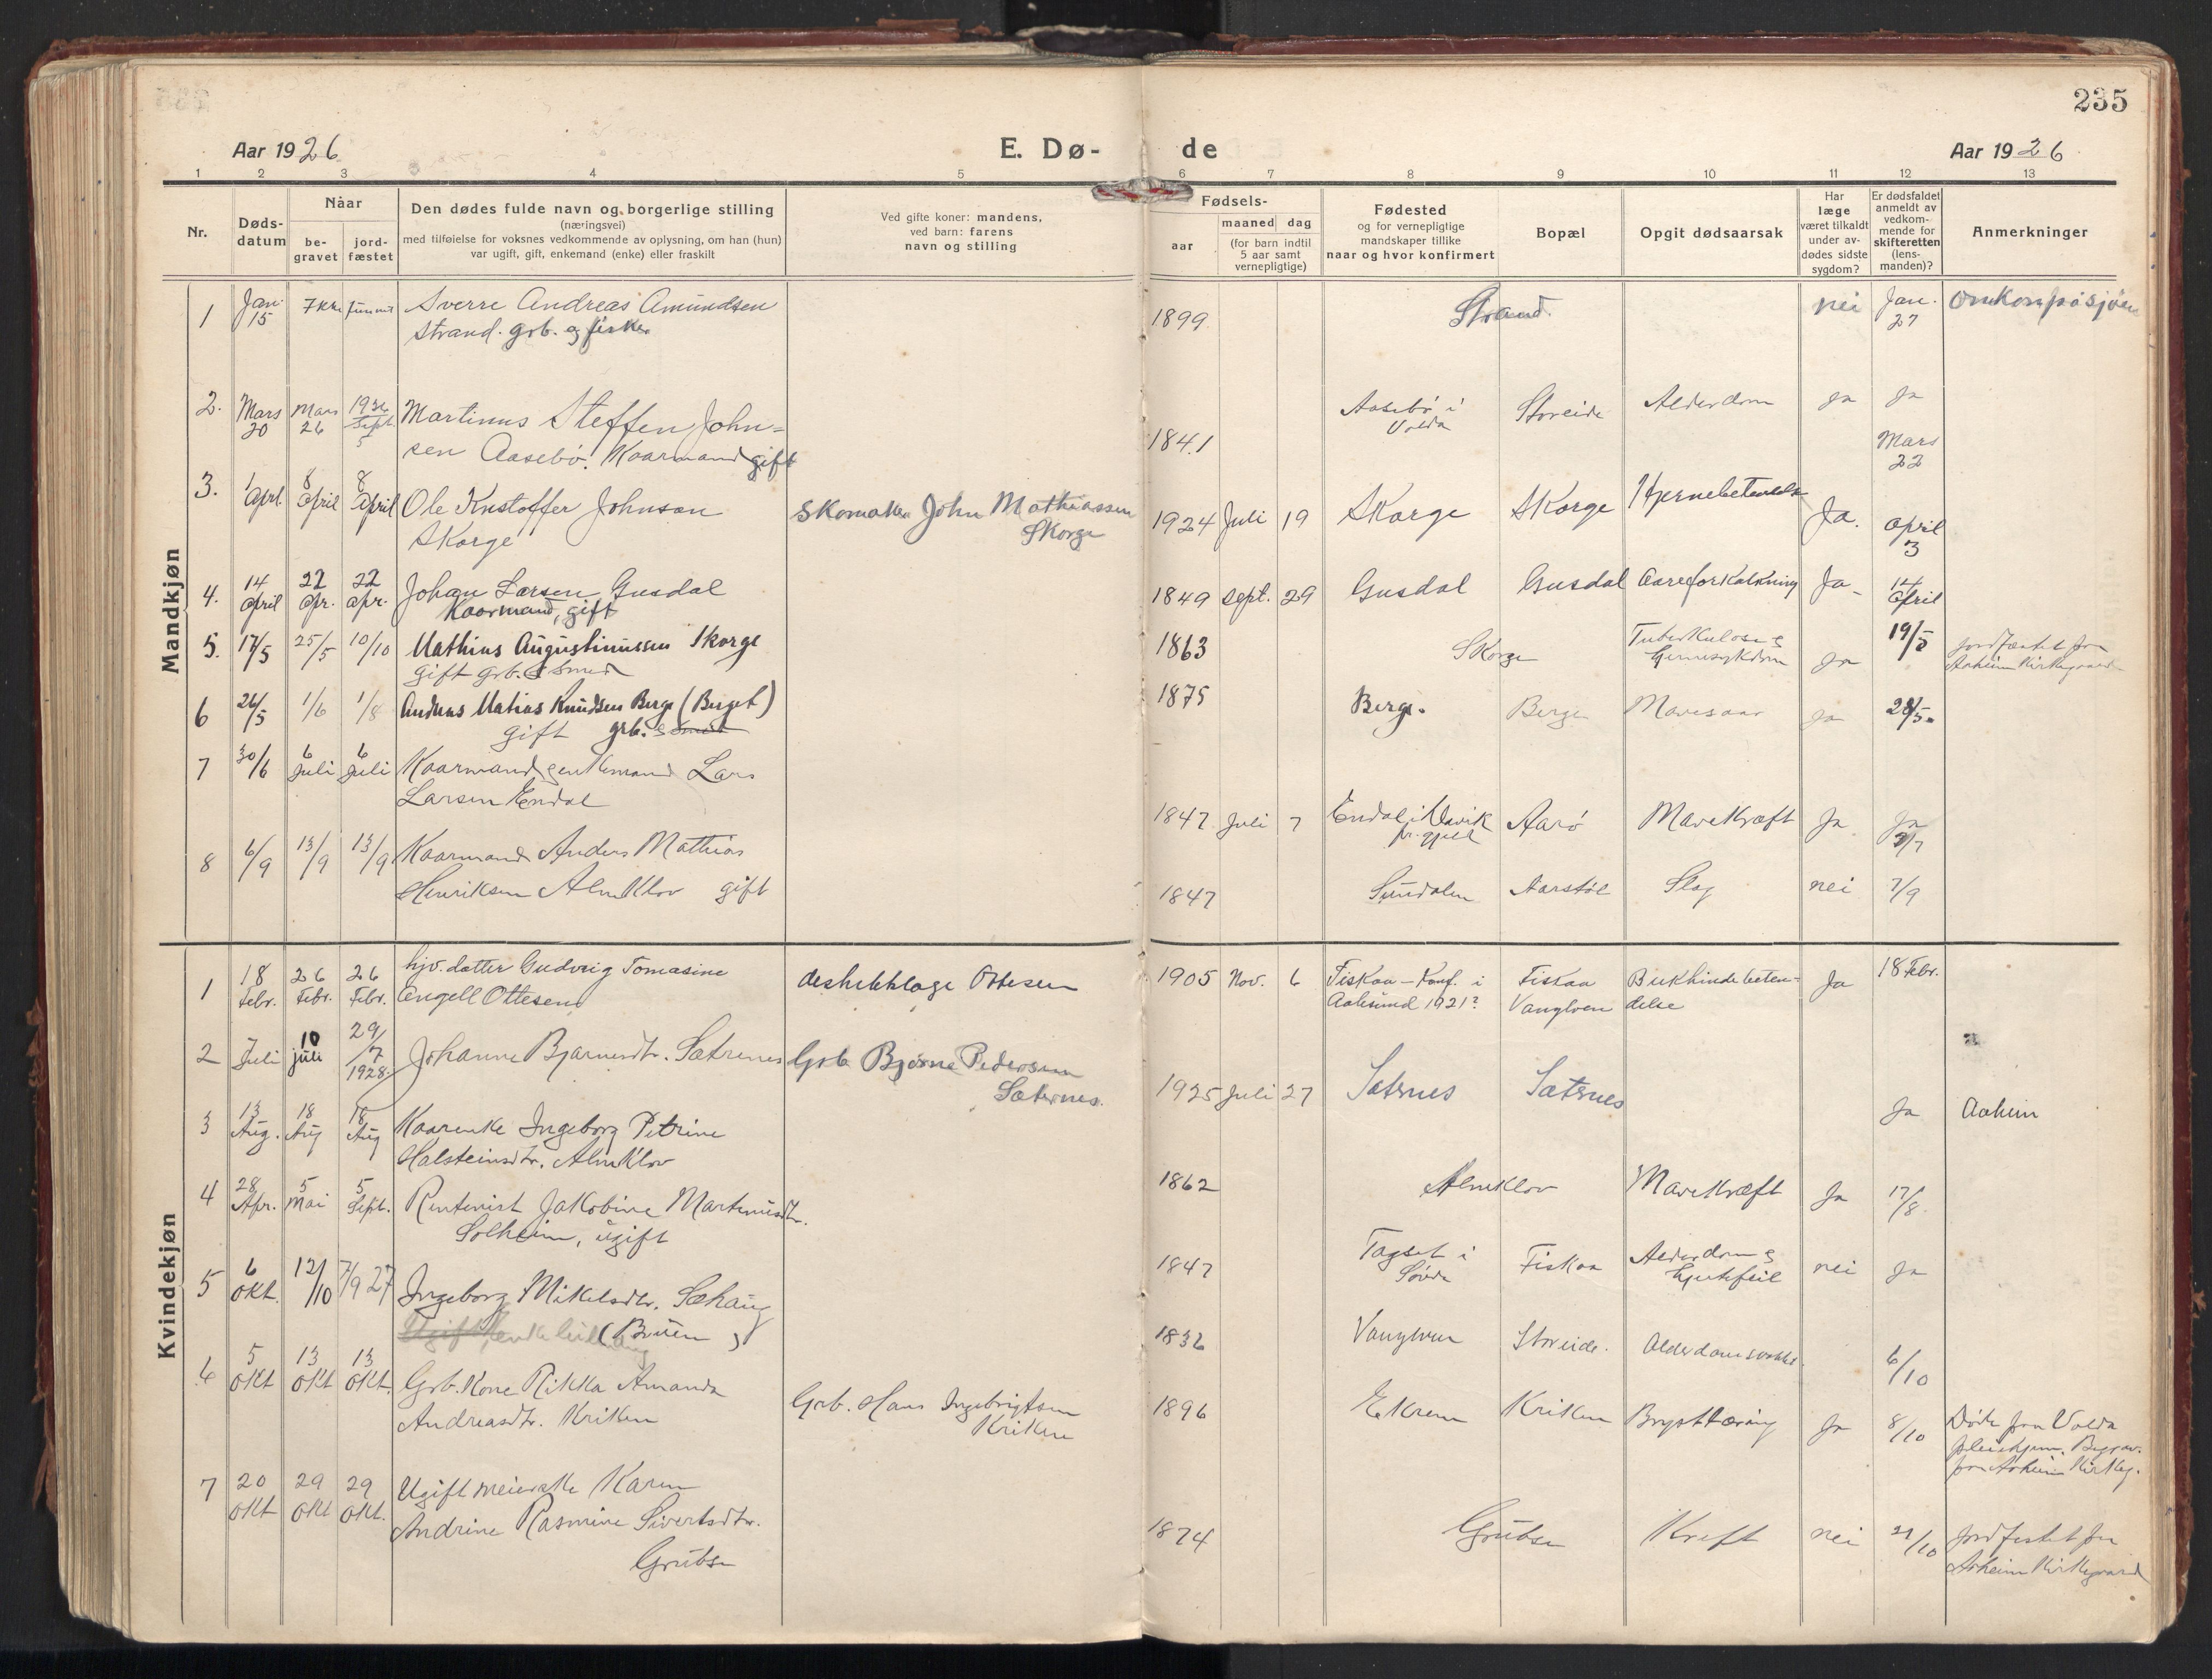 235
Aar 1926
E. Dø-
de
Aar 1926
1 2 3 4 5 6 7 8 9 10 11 12 13
Nr.
Døds-
datum
Nåar
be-
gravet
jord-
fæstet
Den dødes fulde navn og borgerlige stilling
(næringsvei)
med tilføielse for voksnes vedkommende av oplysning, om han (hun)
var ugift, gift, enkemand (enke) eller fraskilt
Ved gifte koner: mandens,
ved barn: farens
navn og stilling
Fødsels-
aar
maaned dag
(for barn indtil
5 aar samt
vernepligtige)
Fødested
og for vernepligtige
mandskaper tillike
naar og hvor konfirmert
Bopæl
Opgit dødsaarsak
Har
læge
været tilkaldt
under av-
dødes sidste
sygdom?
Er dødsfaldet
anmeldt av
vedkom-
mende for
skifteretten
(lens-
manden)?
Anmerkninger
Mandkjøn
1 Jan. 15 Sverre Andreas Amundsen 1899 Strand. nei Jan. 27 Omkom på sjøen
Strand. grb. og fisker
2. Mars 20 Mars 26 Martinus Steffen John= 1841 Aasebø i Storeide Alderdom ja ja
sen Aasebø. Kaarmand gift Volda Mars 22
3. 1 April 8 April 8 April Ole Kristoffer Johnson Skomaker John Mathiassen 1924 Juli 19 Skorge Skorge Ja. April 3
Skorge Skorge
4. 14 April 22 Apr. 22 Apr. Johan Larsen Gusdal 1849 Sept. 29 Gusdal Gusdal Aareforkalkning Ja April
Kaarmand, gift
5. 17/5 25/5 10/10 Mathias Augustinussen Skorge 1863 Skorge Tuberkulose & ja 19/5 Jordfæstet fra
gift grb. & smed Aaheim Kirkegaard
6 26/5 1/6 1/8 Anders Matias Knudsen Berge (Berget) 1875 Berge. Berge Mavesaar ja 28/5.
gift grb. & smed
7 30/6 6 Juli 6 Juli Kaarmand enkemand Lars
Larsen Endal 1847 Juli 7 Endal i Davik Aarø Mavekræft Ja Ja
pr.gjeld
8 6/9 13/9 13/9 Kaarmand Anders Mathias
Henriksen Almklov gift 1847 Sundalen Aarstøl Slag nei 7/9
Kvindekjøn
1 18 Febr. 26 Febr. 26 Febr. hjv. datter Gudveig Tomasine distriktslæge Ottesen 1905 Nov. 6 Fiskaa – Konf. i Fiskaa Bukhindebeten- Ja 18 Febr.
Angell Ottesen Aalesund 1921? Vanylven delse
2 7 Juli 10 juli 29/7 1928. Johanne Bjarnesdtr. Sætrenes Grb Bjarne Pedersen
Sæternes. 1925 Juli 27 Sæternes Sæternes Ja Aaheim
3 13 Aug. 18 Aug 18 Aug Kaarenke Ingeborg Petrine
Halsteinsdtr. Almklov 1862 Almklov Mavekræft Ja 17/8
4 28 Apr. 5 Mai 5 Sept. Rentenist Jakobine Martinusdtr.
Solheim, ugift 1847 Tagset i Fiskaa Alderdom & nei ja
Søvde Hjertefeil
5 6 Okt. 12/10 7/9 27 Ingeborg Mikelsdtr. Sæhaug
(Bruen) 1832 Vanylven Storeide. Alderdomssvakhet. 6/10
6 5 Okt 13 Okt 13 Okt. Grb. Kone Rikka Amanda Grb. Hans Ingebrigtsen
Andreasdtr. Kriken Kriken 1896 Ekrem Kriken Brysttæring Ja 8/10 Døde paa Volda
pleiehjem. Begrav.
paa Aaheim Kirkeg.
7 20 Okt 29 Okt 29 Okt. Ugift meierske Karen
Andrine Rasmine Sivertsdtr.
Grubse 1874 Grubse Kreft nei 21/10 Jordfestet fra
Aaheim Kirkegaard